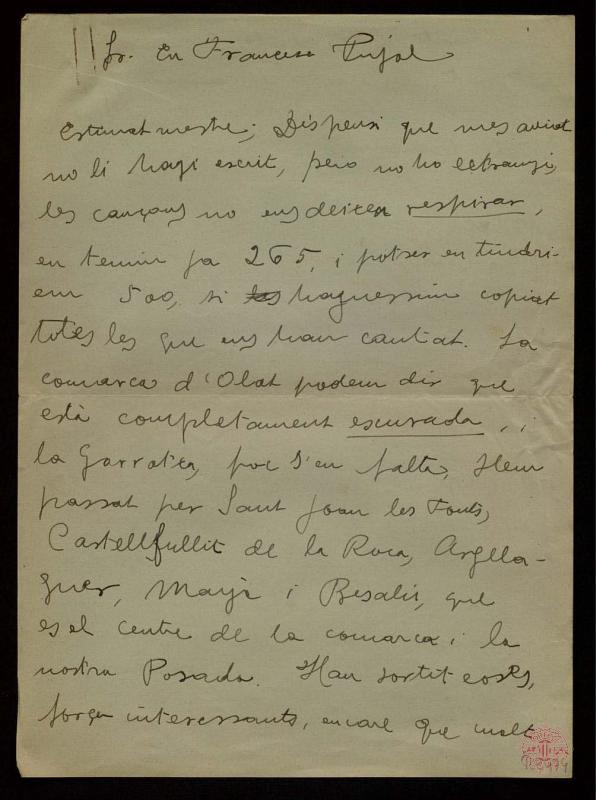 Sr. En Francesc Pujol
Estimat mestre; Dispensi que mes aviat
no li hagi escrit, pero no ho extranyi,
les cançons no ens deixen respirar,
en tenim ja 265, i potser en tindri-
em 500, si haguessim copiat
totes les que ens han cantat. La
comarca d'Olot podem dir que
està completament escurada, i
la Garrotxa, poc s'en falta, Hem
passat per Sant Joan les Fonts,
Castellfullit de la Roca, Argela-
guer, Mayà i Besalú, que
es el centre de la comarca i la
nostra Posada. Han sortit coses,
força interessants, encare que molt